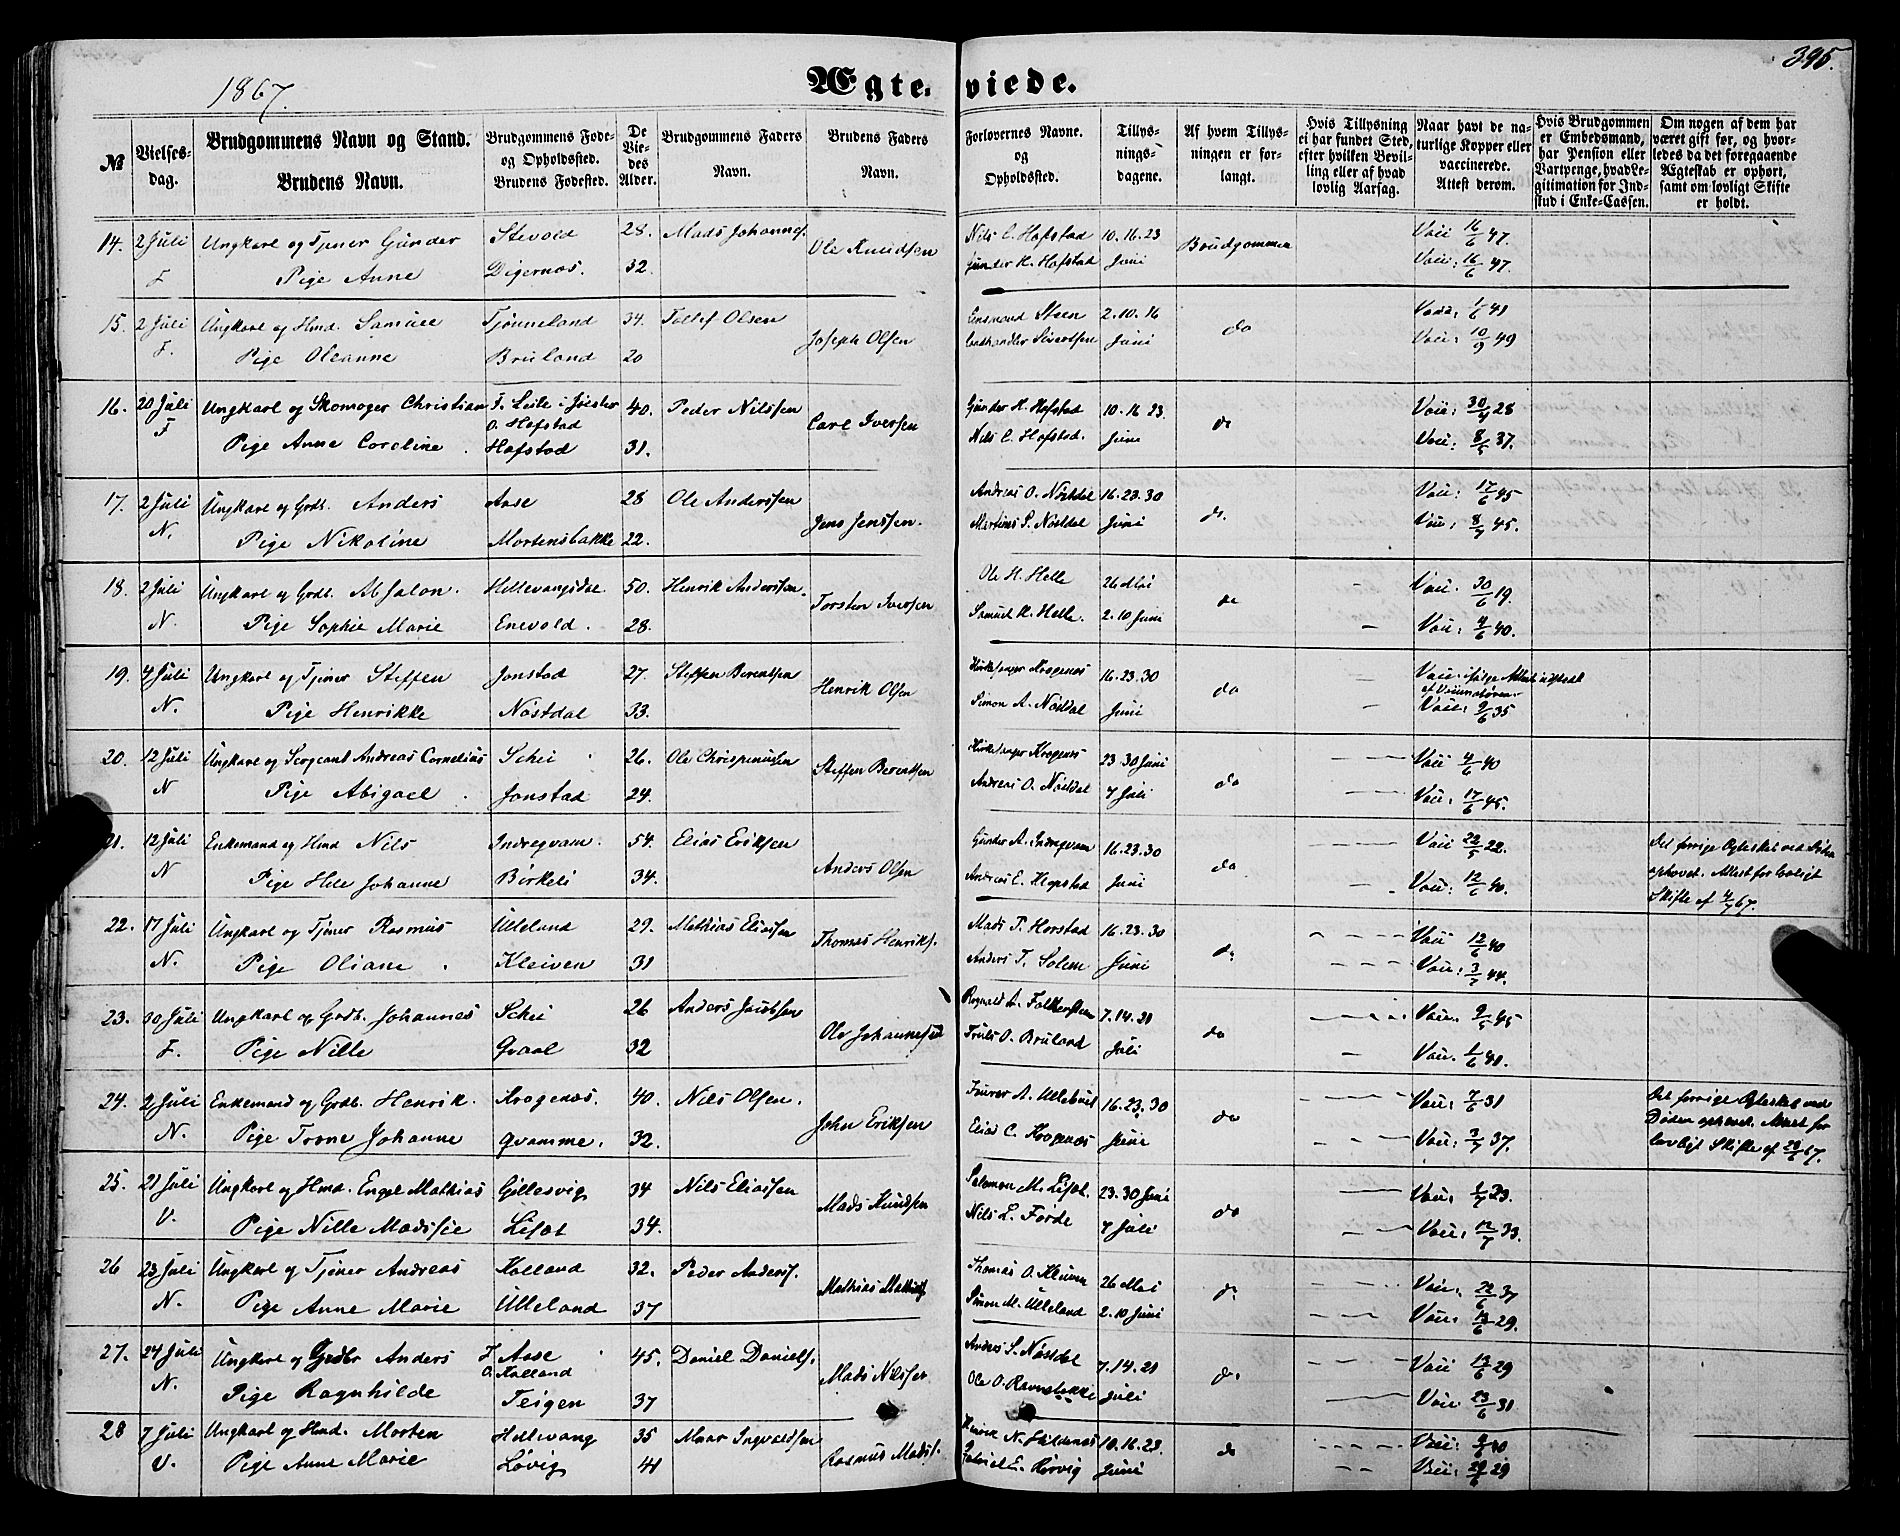 1867.
Ægte- viede.
395.
№
Vielses-dag.
Brudgommens Navn og Stand.
Brudens Navn.
Brudgommens Føde- og Opholdssted.
Brudens Fødested.
De Viedes Alder.
Brudgommens Faders Navn.
Brudens Faders Navn.
Forlovernes Navne. og Opholdssted.
Tillysningsdagene.
Af hvem Tillysningen er forlangt.
Hvis Tillysning ei har fundet Sted, efter hvilken Bevilling eller af hvad lovlig Aarsag.
Naar havt de naturlige Kopper eller vaccinerede. Attest derom.
Hvis Brudgommen er Embedsmand, har Pension eller Vartpenge, hvad Legitimation for Indskud i Enke-Cassen.
Om nogen af dem har været gift før, og hvorledes da det foregaaende Ægteskab er ophørt, samt om lovligt Skifte er holdt.
14. 2 Juli Ungkarl og Tjener Gunder Stevold 28. Mads Johannes. Ole Knudsen Nils C. Hofstad 10. 16. 23 Brudgommen Vacc 16/6 47.
F Pige Anne Digernæs. 32. Gunder H. Hofstad Juni Vacc: 16/6 47.
15. 2 Juli Ungkarl og Hmd. Samuel Tjønneland 34. Tollef Olsen Joseph Olsen Steen 2. 10. 16 do Vacc: 1/6 41
F. Pige Oleanne Bruland 20 Landhandler Sivertsen Juni Vacc: 10/9 49
16. 20 Juli Ungkarl og Skomager Christian F. Leite i Jølster 40. Peder Nilssen Carl Iversen Gunder H. Hofstad 10. 16 23 do Vacc: 30/9 28
F O. Hofstad
Pige Anne Coroline Hofstad 31. Nils C. Hofstad. Juni Vacc: 8/5 37.
17. 2 Juli Ungkarl og Grdb. Anders Aase 28 Ole Anderssen Jens Jenssen. Andreas O. Nøstdal 16. 23. 30 do. Vacc: 17/6 45
N. Pige Nikoline Mortensbakke 22. Martinus S. Nøstdal Juni Vacc: 8/7 45.
18. 2 Juli Ungkarl og Grdb. Absalon. Hellevangsdal 50. Henrik Anderssen. Torsten Iversen Ole H. Helle 26 Mai do Vacc. 30/6 19.
N. Pige Sophie Marie Enevold. 28. Samuel H. Helle. 2. 10 Juni Vacc: 4/6 40.
19. 4 Juli Ungkarl og Tjener Steffen Jonstad 27. Steffen Berentsen Henrik Olsen Kirkesanger Krogenæs 16. 23. 30 do Vacc. ifølge Attest udstedt af Vaccinatøren.
N. Pige Henrikke Nøstdal 33. Simon A. Nøstdal Juni Vacc: 9/6 35
20. 12 Juli Ungkarl og Sergeant Andreas Cornelius Schei 26. Ole Chrispinussen Steffen Berentsen Kirkesanger Krogenæs 23 30 Juni do Vacc 4/6 40
N Pige Abigael Jonstad 24. Andreas O. Nøstdal 7 Juli Vacc: 17/6 45.
21. 12 Juli Enkemand og Hmd Nils Indregvam. 54. Elias Eriksen Anders Olsen Gunder A. Indregvam 16. 23. 30 do Vacc 22/5 22. Det forrige Egteskab ved Døden
N Pige Hele Johanne Birkeli 34. Andreas E. Hopstad Juni Vacc: 12/6 40. ophævet. Attest for lovligt Skifte af 4/7 67.
22. 17 Juli Ungkarl og Tjener Rasmus Ulleland 29. Mathias Eliassen Thomas Henriks. Mads P. Horstad 16. 23. 30 do Vacc 12/6 40
N. Pige Oliane Kleiven 31 Anders T. Solem Juni Vacc: 3/7 44.
23. 20 Juli Ungkarl og Grdb. Johannes Schei 26 Anders Jacobsen Ole Johannessen Ragnald A. 7. 14. 21 do Vacc. 9/5 45
F. Pige Nille Qvaal 32 Truls O. Bruland Juli Vacc. 1/6 41.
24. 2 Juli Enkemand og Grdb. Henrik. Krogenæs. 40. Nils Olsen. John Eriksen Iverer A. 16. 23. 30 do Vacc: 7/6 31 Det forrige Egteskab ved
N. Pige Trone Johanne Qvamme. 32. Elias C. Krogenæs Juni Vacc: 3/7 37. Døden ophævet. Attest for lovligt Skifte af 28/6 67.
25. 21 Juli Ungkarl og Hmd. Engel Mathias Gillesvig 34 Nils Eliassen Mads Knudsen Salomon M. Lisæt. 23. 30 Juni do Vacc: 1/7 23.
V. Pige Nille Madssie Lisæt 34. Nils L. Førde 7 Juli Vacc: 12/7 33.
26 23 Juli Ungkarl og Tjener Andreas Kalland 32. Peder Anders. Mathias Mathias Thomas O. Kleiven 26 Mai do Vacc. 22/6 37
N. Pige Anne Marie Ulleland 37 Simon M. Ulleland 2. 10 Juni Vacc. 13/6 29.
27. 24 Juli Ungkarl og Grdbr Anders F Aase 45. Daniel Daniels. Mads Nilssen Anders S. Nøstdal 7. 14. 21 do. Vacc 13/6 29
N. O. Kalland
Pige Ragnhilde Teigen 37 Ole O. Ravnebakke Juli Vacc 23/6 31
28 7 Juli Ungkarl og Hmd. Morten Hellevang 35 Maar Ingvaldsen Rasmus Mads. Henrik N. Hildenæs 10. 16. 23. do Vacc: 9/6 40
V. Pige Anne Marie Løvig 41 Gabriel E. Hørvig Juni Vacc: 29/6 29